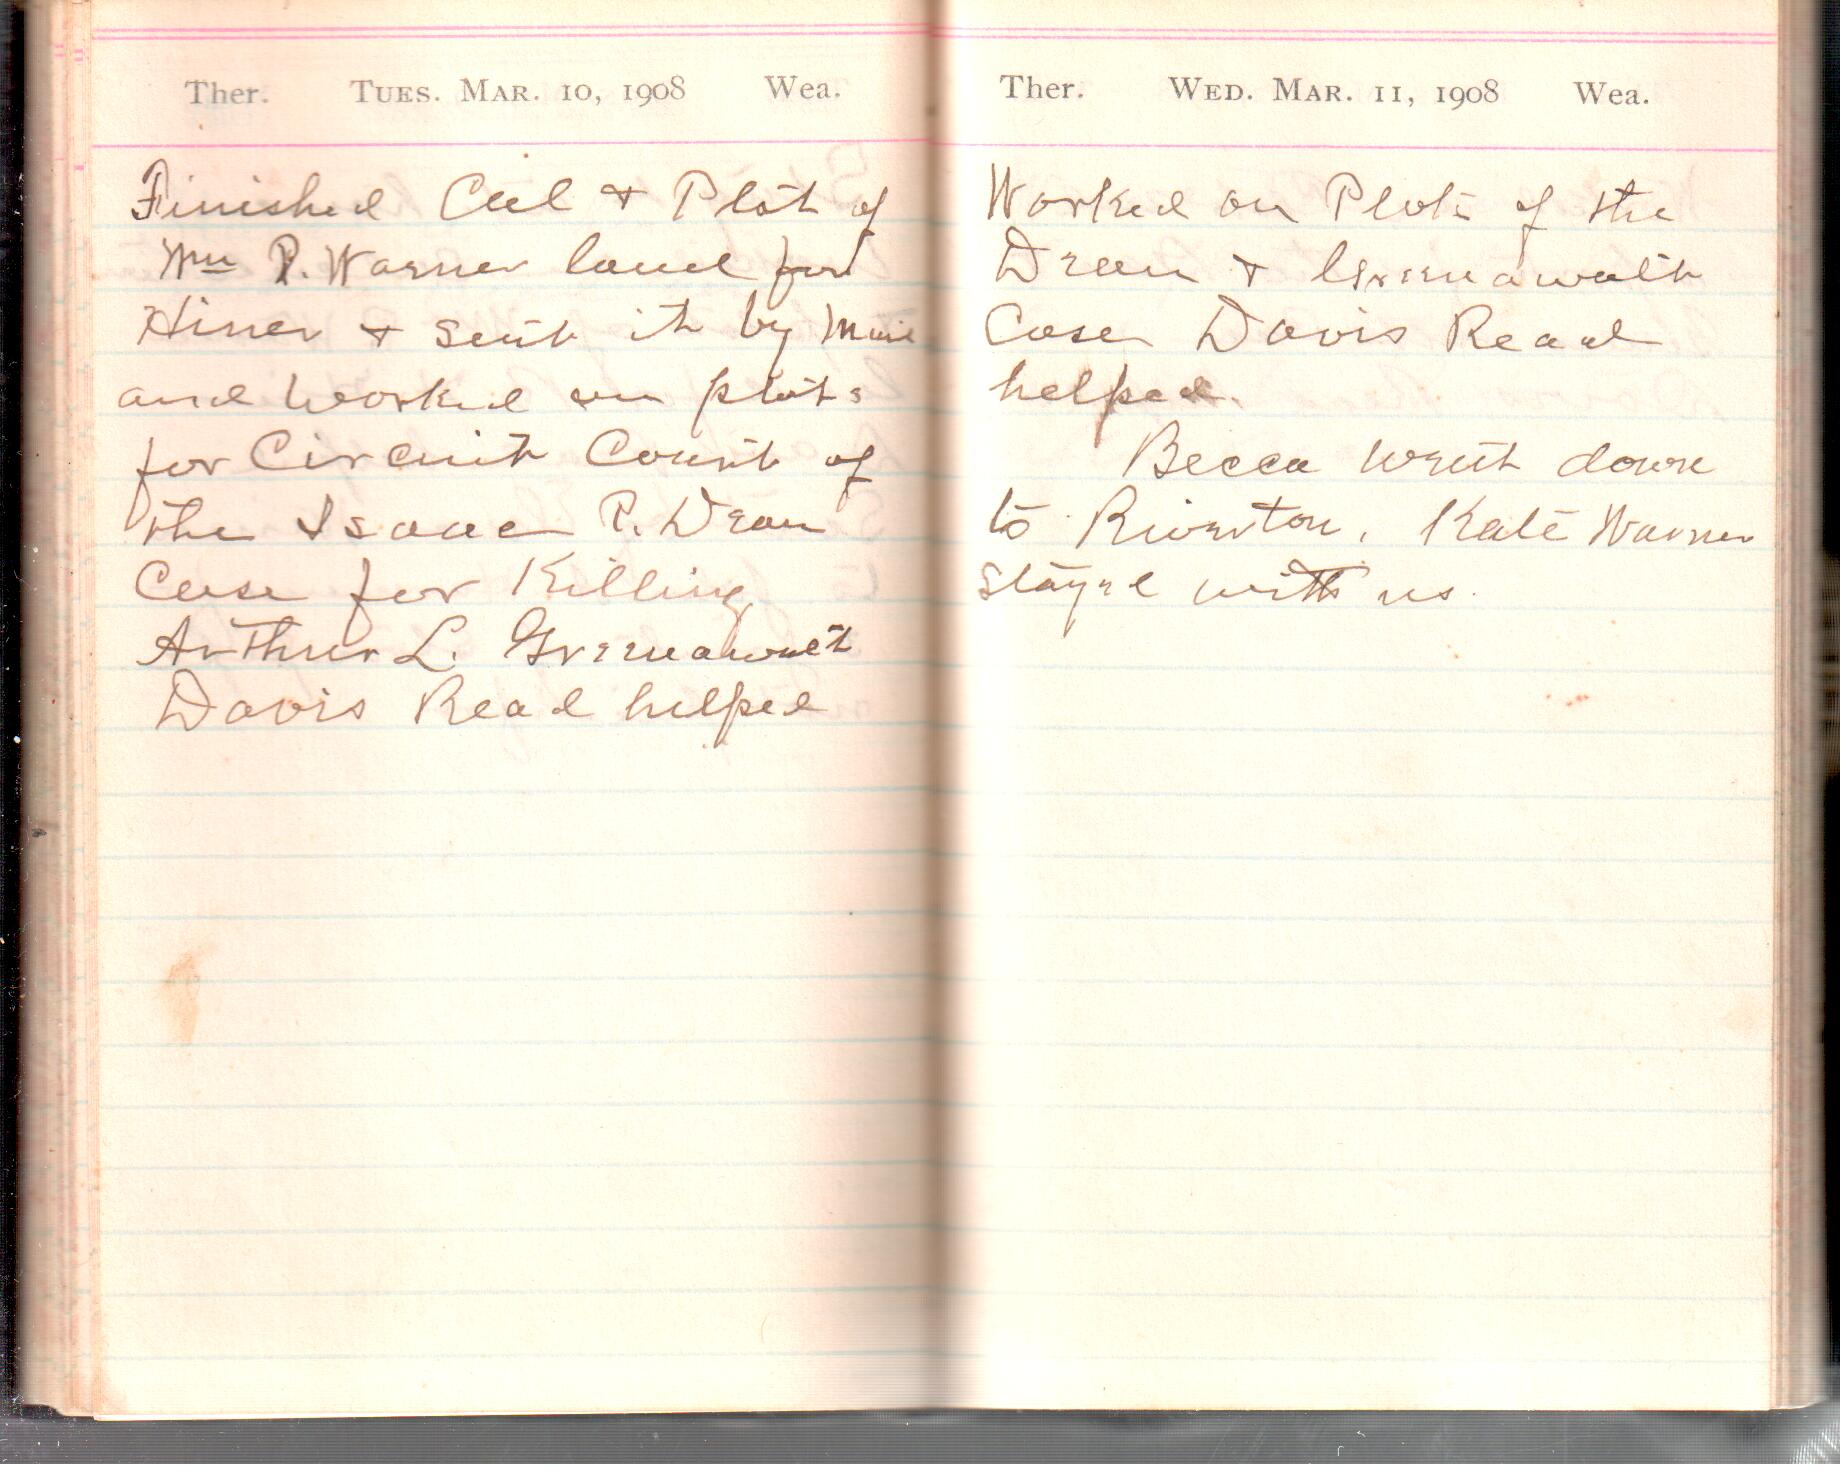 Ther. Tues. Mar. 10, 1908 Wea.
Finished Cal & Plat of
Wm P. Warner land for
Hiner & sent it by Mail
and worked on plats
for Circuit Court of
the Isaac P. Dean
Case for Killing
Arthur L. Greenawalt
Davis Read helped
Ther. Wed. Mar. 11, 1908 Wea.
Worked on Plats of the
Dean & Greenawalt
Case Davis Read
helped.
Becca went down
to Riverton. Kate Warner
stayed with us.